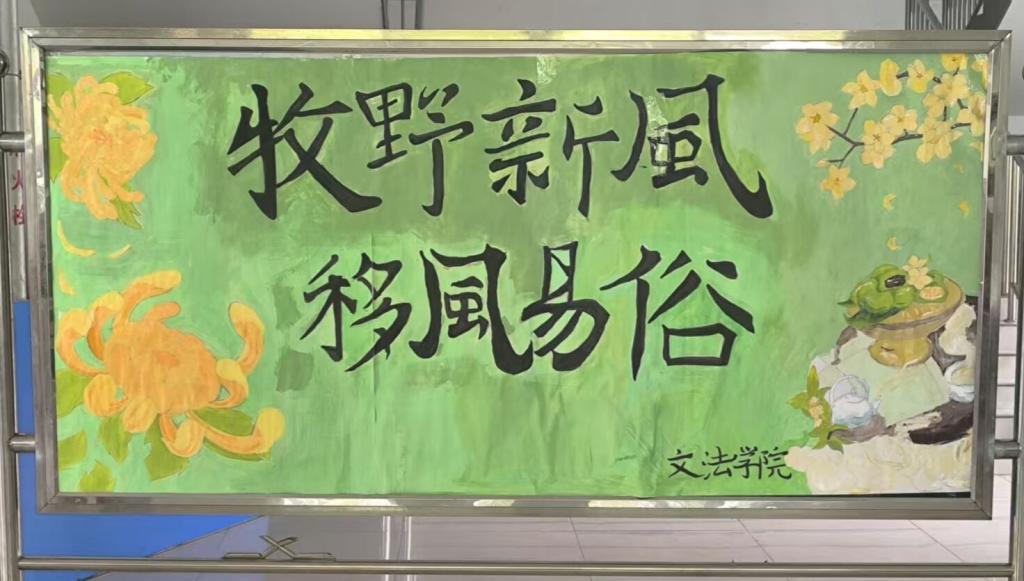 牧野新風
移風易俗
文法学院